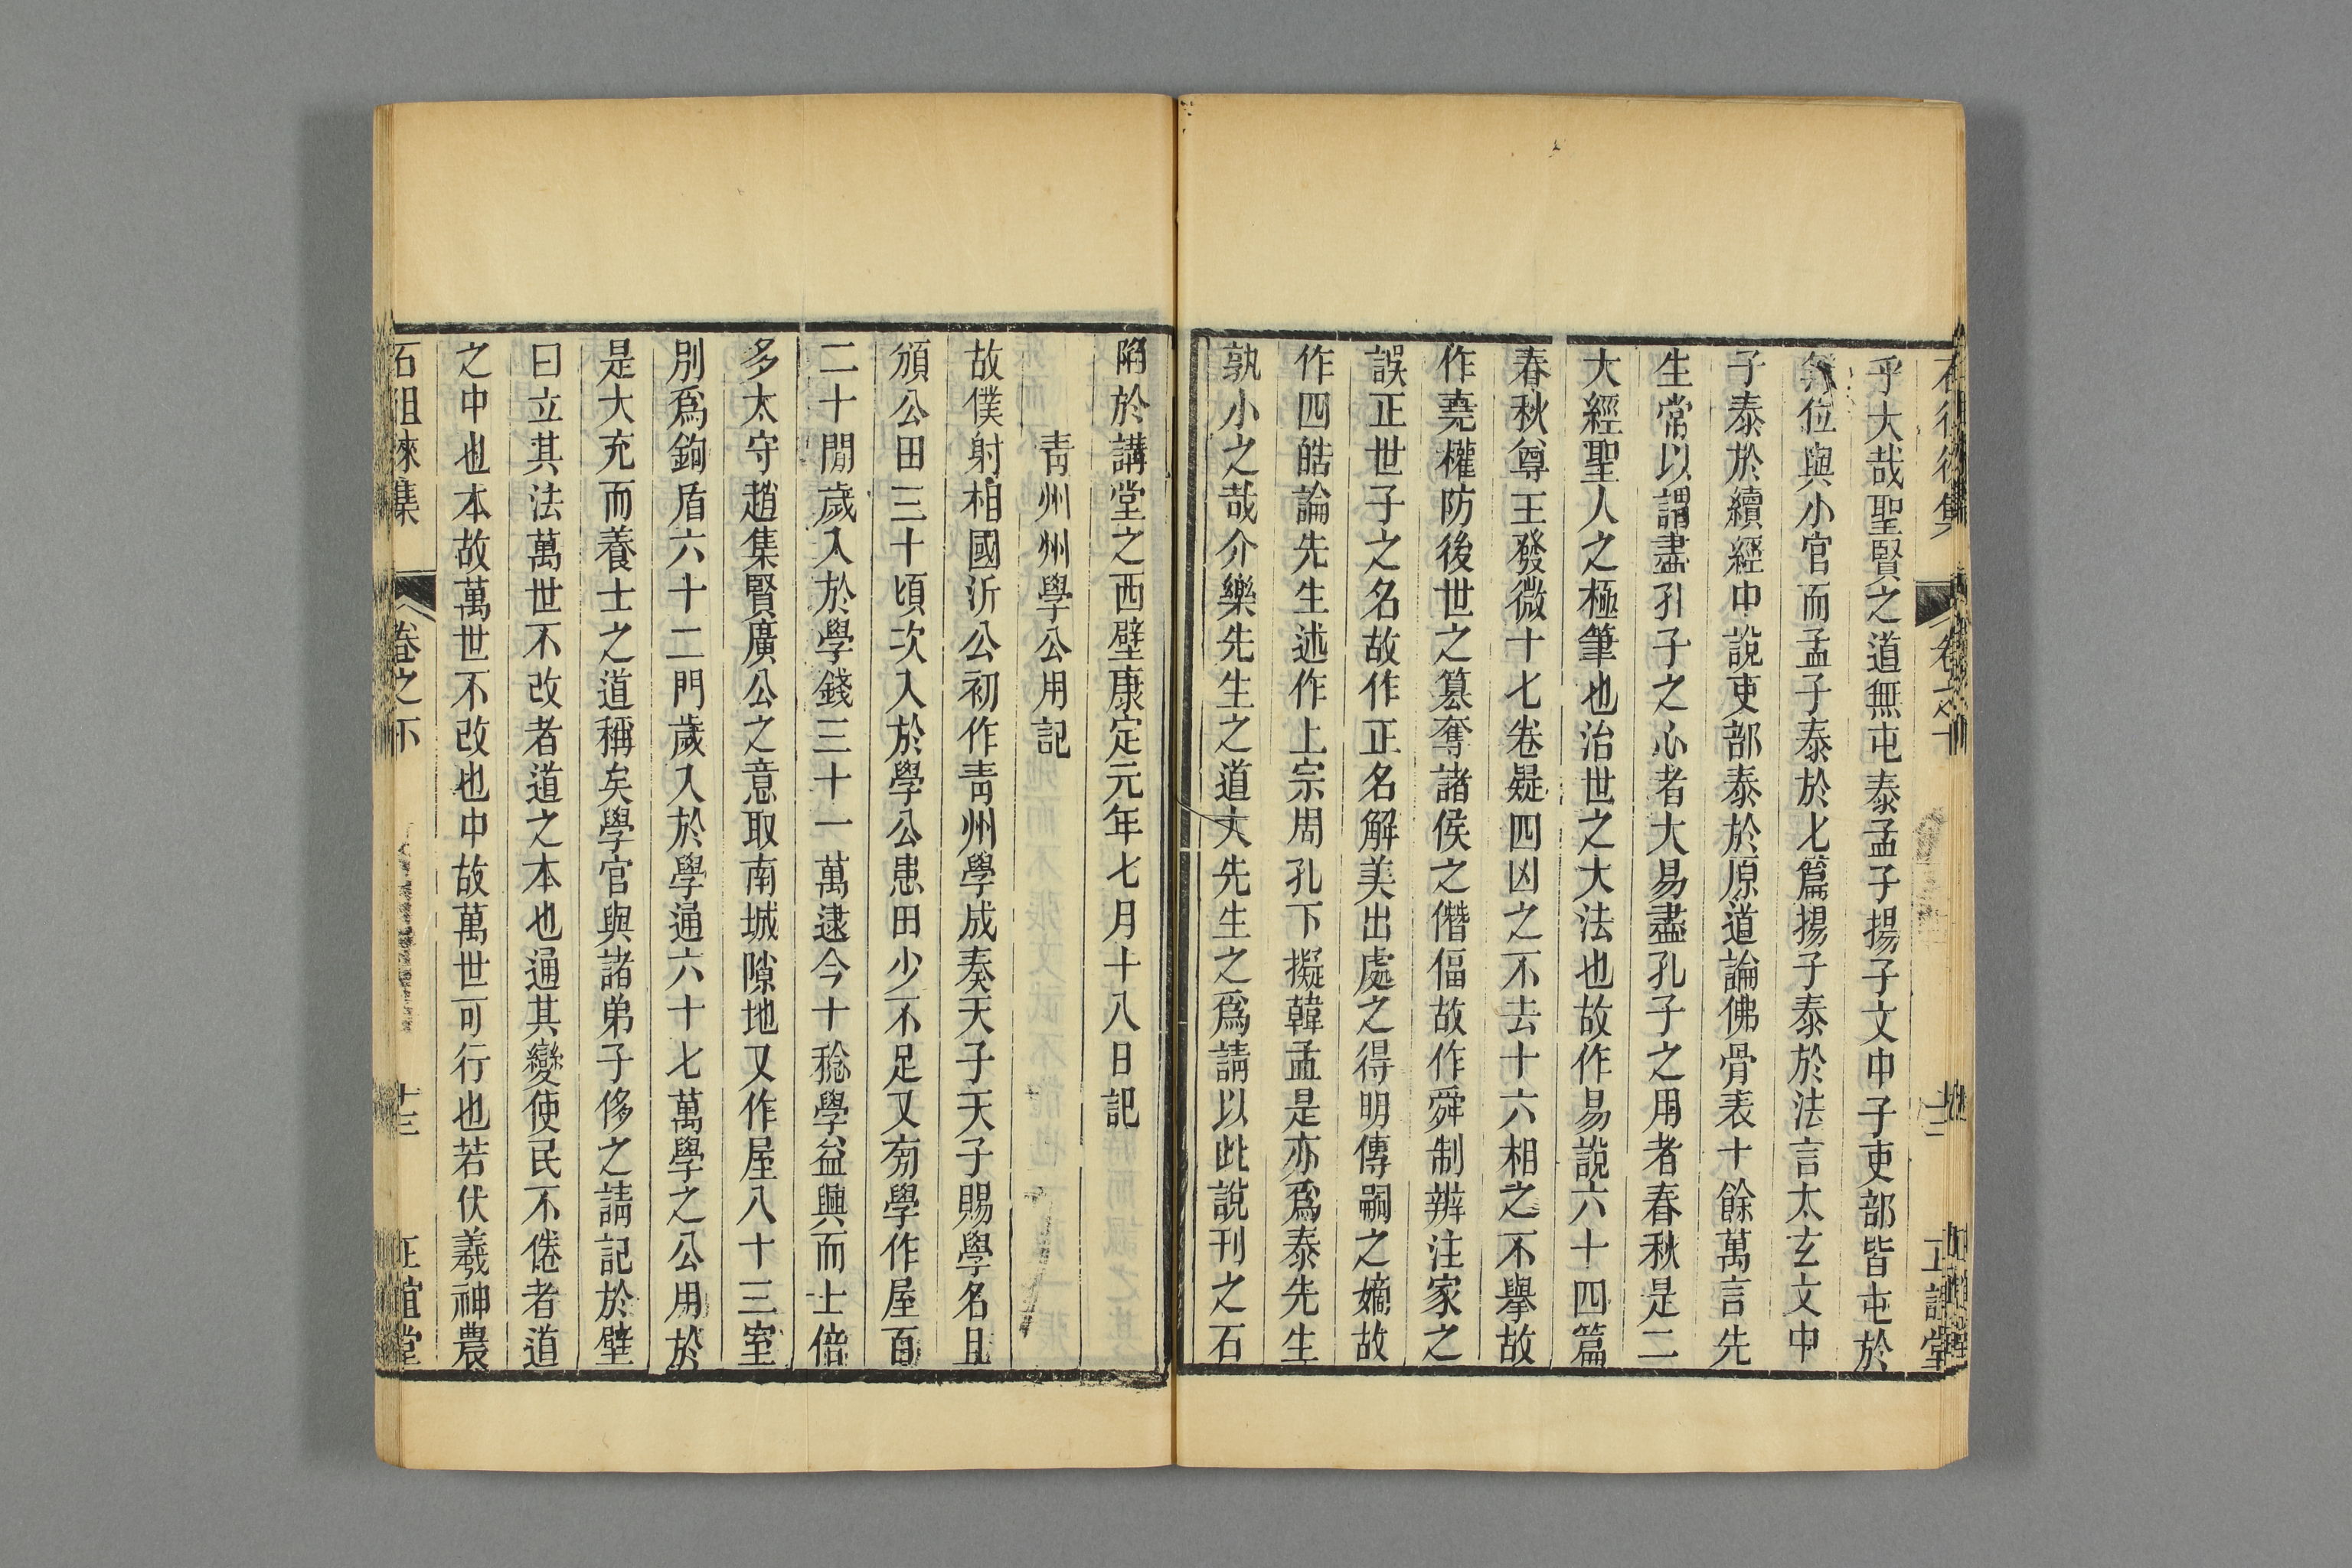 乎大哉聖賢之道無屯泰孟子揚子文中子吏部皆屯於
位與小官而孟子泰於七篇揚子泰於法言太玄文中
子泰於續經中說吏部泰於原道論佛骨表十餘萬言先
生常以謂盡孔子之心者大易盡孔子之用者春秋是二
大經聖人之極筆也治世之大法也故作易說六十四篇
春秋尊王發微十七卷疑四凶之不去十六相之不舉故
作堯權防後世之篡奪諸侯之僭偪故作舜制辨注家之
誤正世子之名故作正名解美出處之得明傳嗣之嫡故
作四皓論先生述作上宗周孔下擬韓孟是亦爲泰先生
孰小之哉介樂先生之道大先生之爲請以此說刊之石
陷於講堂之西壁康定元年七月十八日記
青州州學公用記
故僕射相國沂公初作青州學成奏天子天子賜學名且
頒公田三十頃次入於學公患田少不足又旁學作屋百
二十間歲入於學錢三十一萬逮今十稔學益興而士倍
多太守趙集賢廣公之意取南城隙地又作屋八十三室
別爲鉤盾六十二門歲入於學通六十七萬學之公用於
是大充而養士之道稱矣學官與諸弟子侈之請記於壁
曰立其法萬世不改者道之本也通其變使民不倦者道
之中也本故萬世不改也中故萬世可行也若伏羲神農
石徂徠集 卷之下 十三 正誼堂